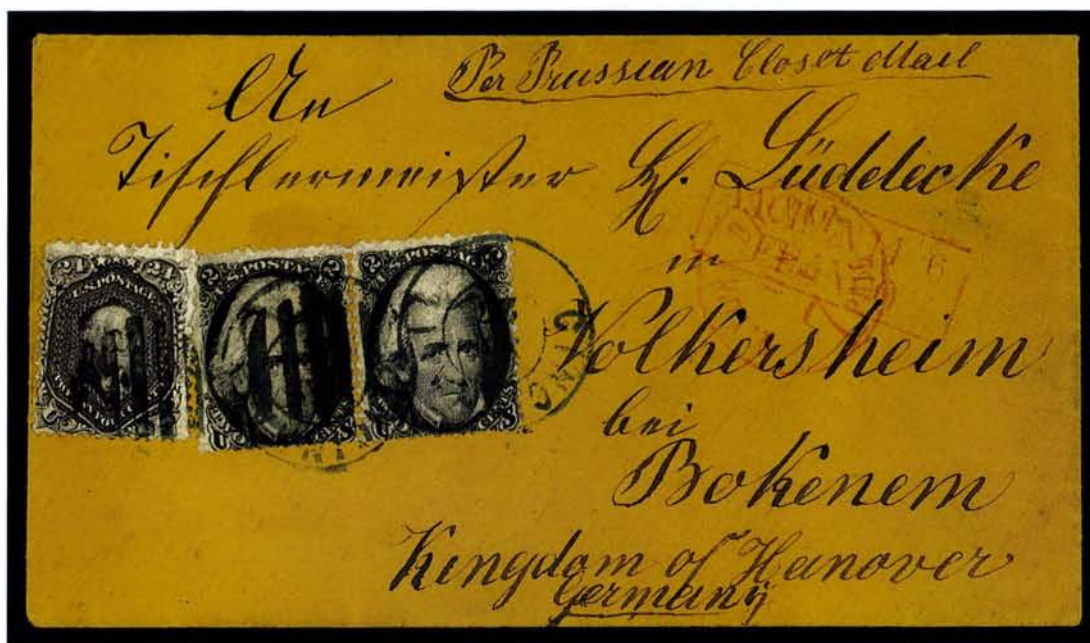 Per Prussian Closet Mail
An
Tischlermeister H. Lüddecke
in
Volkersheim
bei
Bokenem
Kingdom of Hanover
Germany
24 24
U.S. POSTAGE
2 POSTAGE 2
2 POSTAG 2
U S
U S
CIN